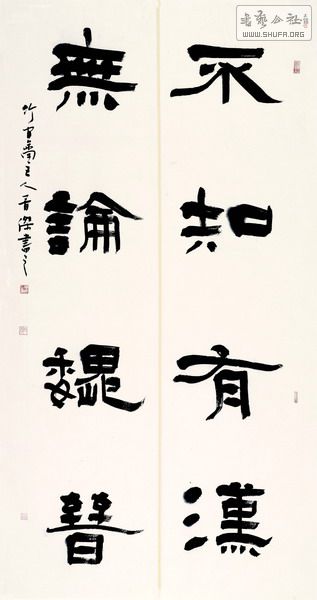 不知有漢
無論魏晉
竹寶齋主人晉傑書之
书艺公社
WWW.SHUFA.ORG